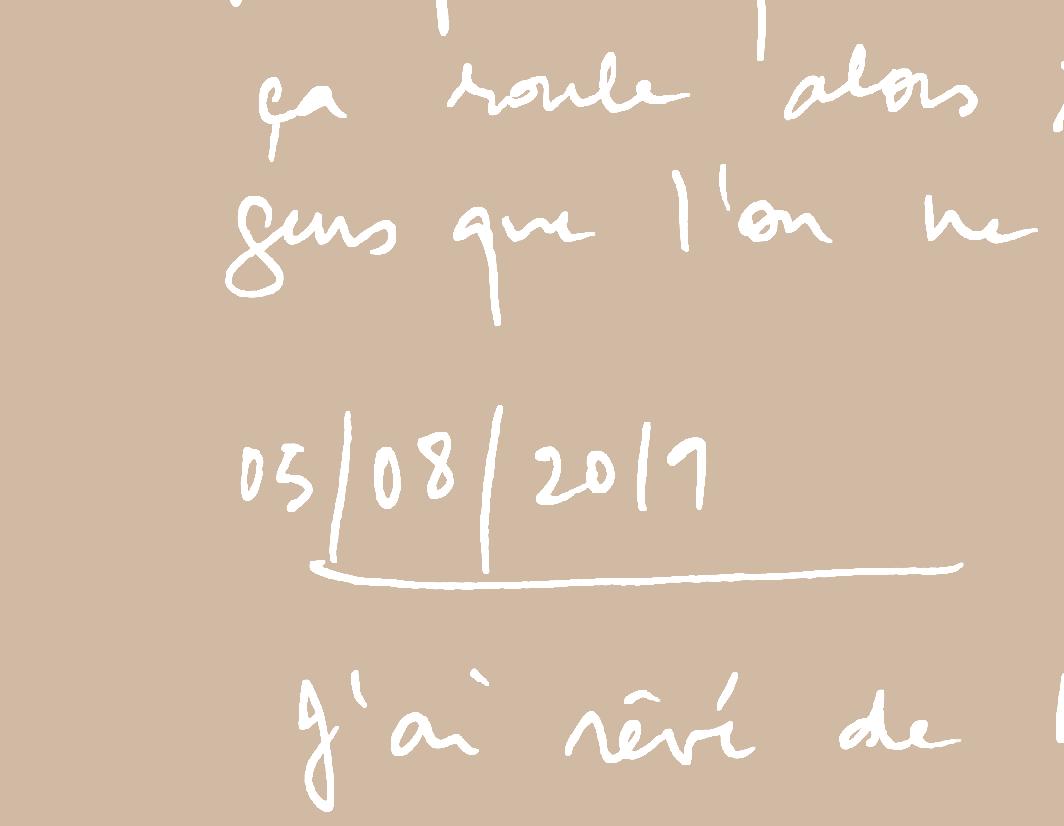 ça roule alors
gens que l'on ne
05/08/2019
J'ai rêvé de